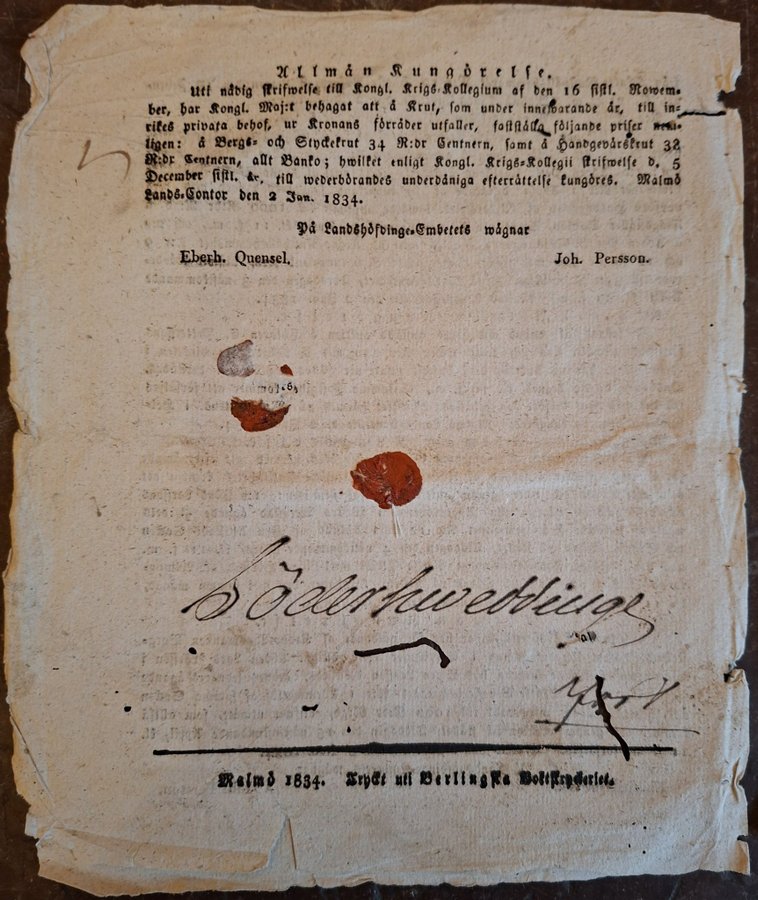 Allmän Kungörelse.
Uti nådig skrifwelse till Kongl. Krigs-Kollegium af den 16 sistl. Nowem-
ber, har Kongl. Maj:t behagat att å Krut, som under innewarande år, till in-
rikes privata behof, ur Kronans förråder utfaller, fastställa följande priser nem-
ligen: å Bergs- och Styckekrut 34 R:dr Centnern, samt å Handgevärskrut 38
R:dr Centnern, allt Banko; hwilket enligt Kongl. Krigs-Kollegii skrifwelse d. 5
December sistl. år, till wederbörandes underdåniga efterrättelse kungöres. Malmö
Lands-Contor den 2 Jan. 1834.
På Landshöfdinge-Embetets wägnar
Eberh. Quensel. Joh. Persson.
Söderhweddinge
Malmö 1834. Tryckt uti Berlingska Boktryckeriet.